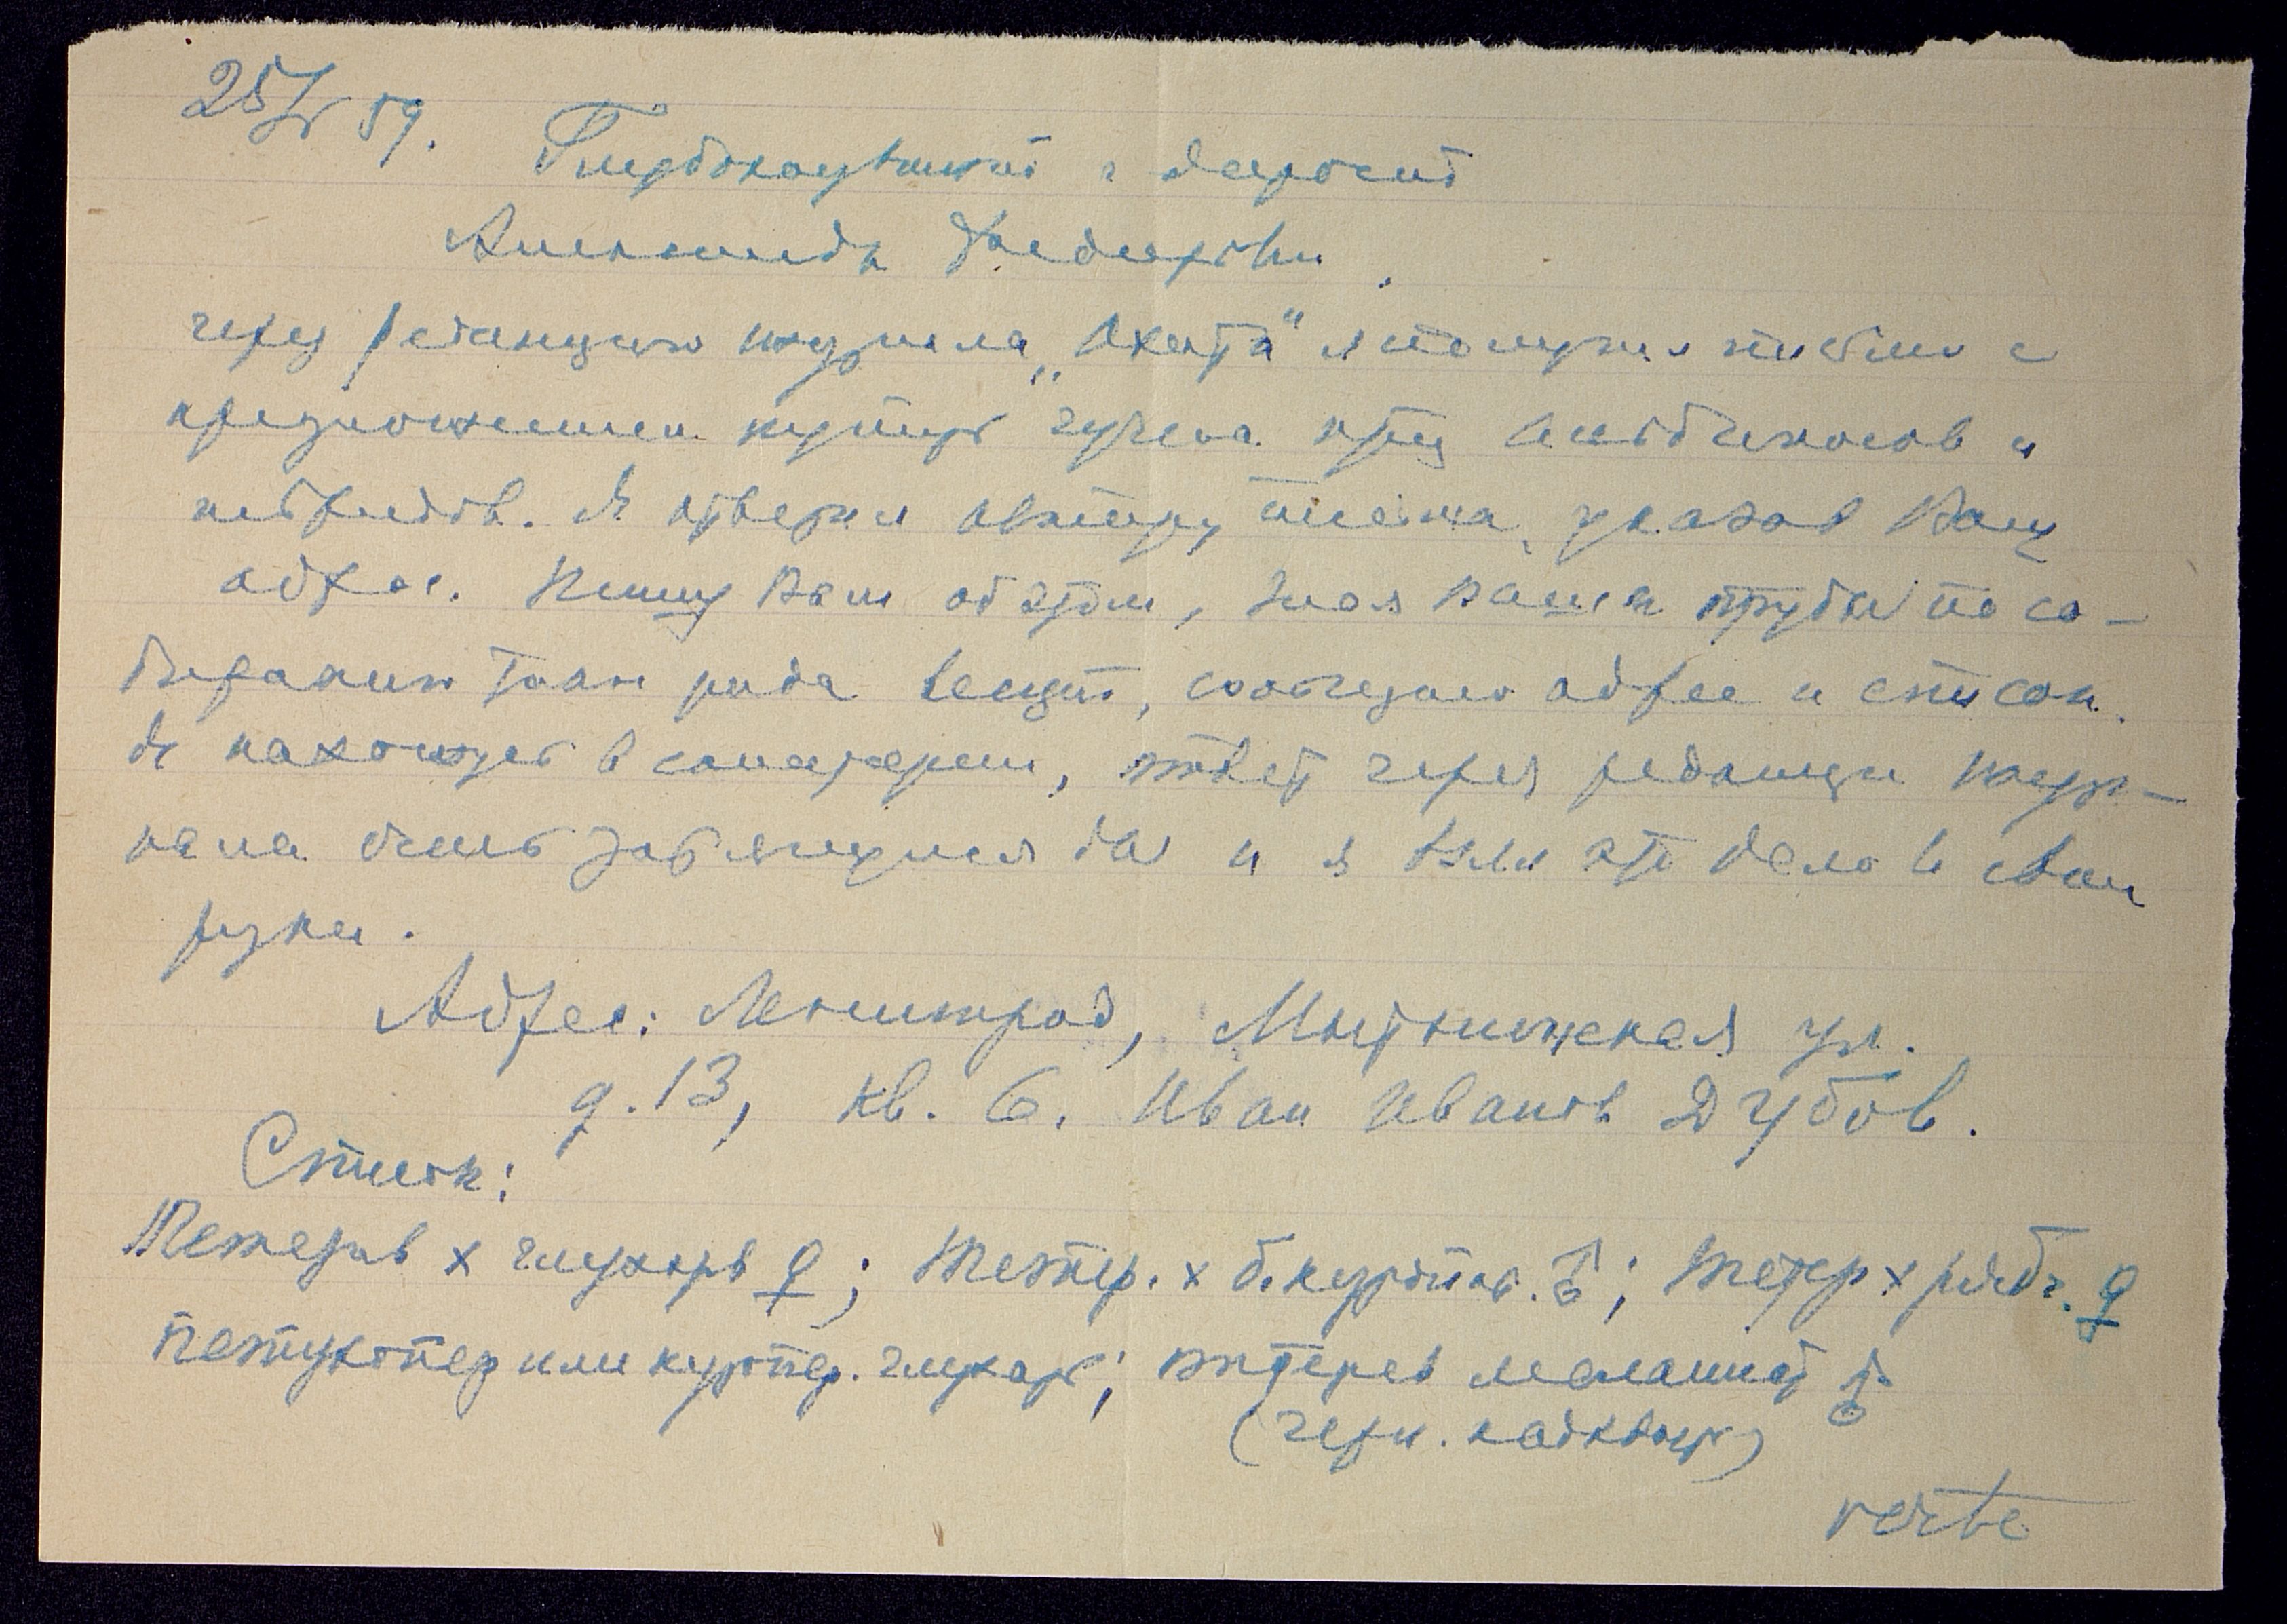 25/IV 59.
Глубокоуважаемый и дорогой
Александр Федорович.
через редакцию журнала „Охота" я получил письмо с
предложением купить чучела птиц альбиносов и
гибридов. Я ответил автору письма, указав Ваш
адрес. Пишу Вам об этом, зная Ваши труды по со-
биранию такого рода вещей, сообщаю адрес и список.
Я нахожусь в санатории, ответ через редакцию жур-
нала очень затянулся бы и я взял это дело в свои
руки.
Адрес: Ленинград, Мытнинская ул.
д. 13, кв. 6. Иван Иванов Дубов.
Список:
Тетерев х глухарь ♀; тетер. х б. куропат. ♂; тетер х рябч. ♀
петухопер или куропер. глухарь; тетерев меланист ♂
(черн. надхвост)
verte